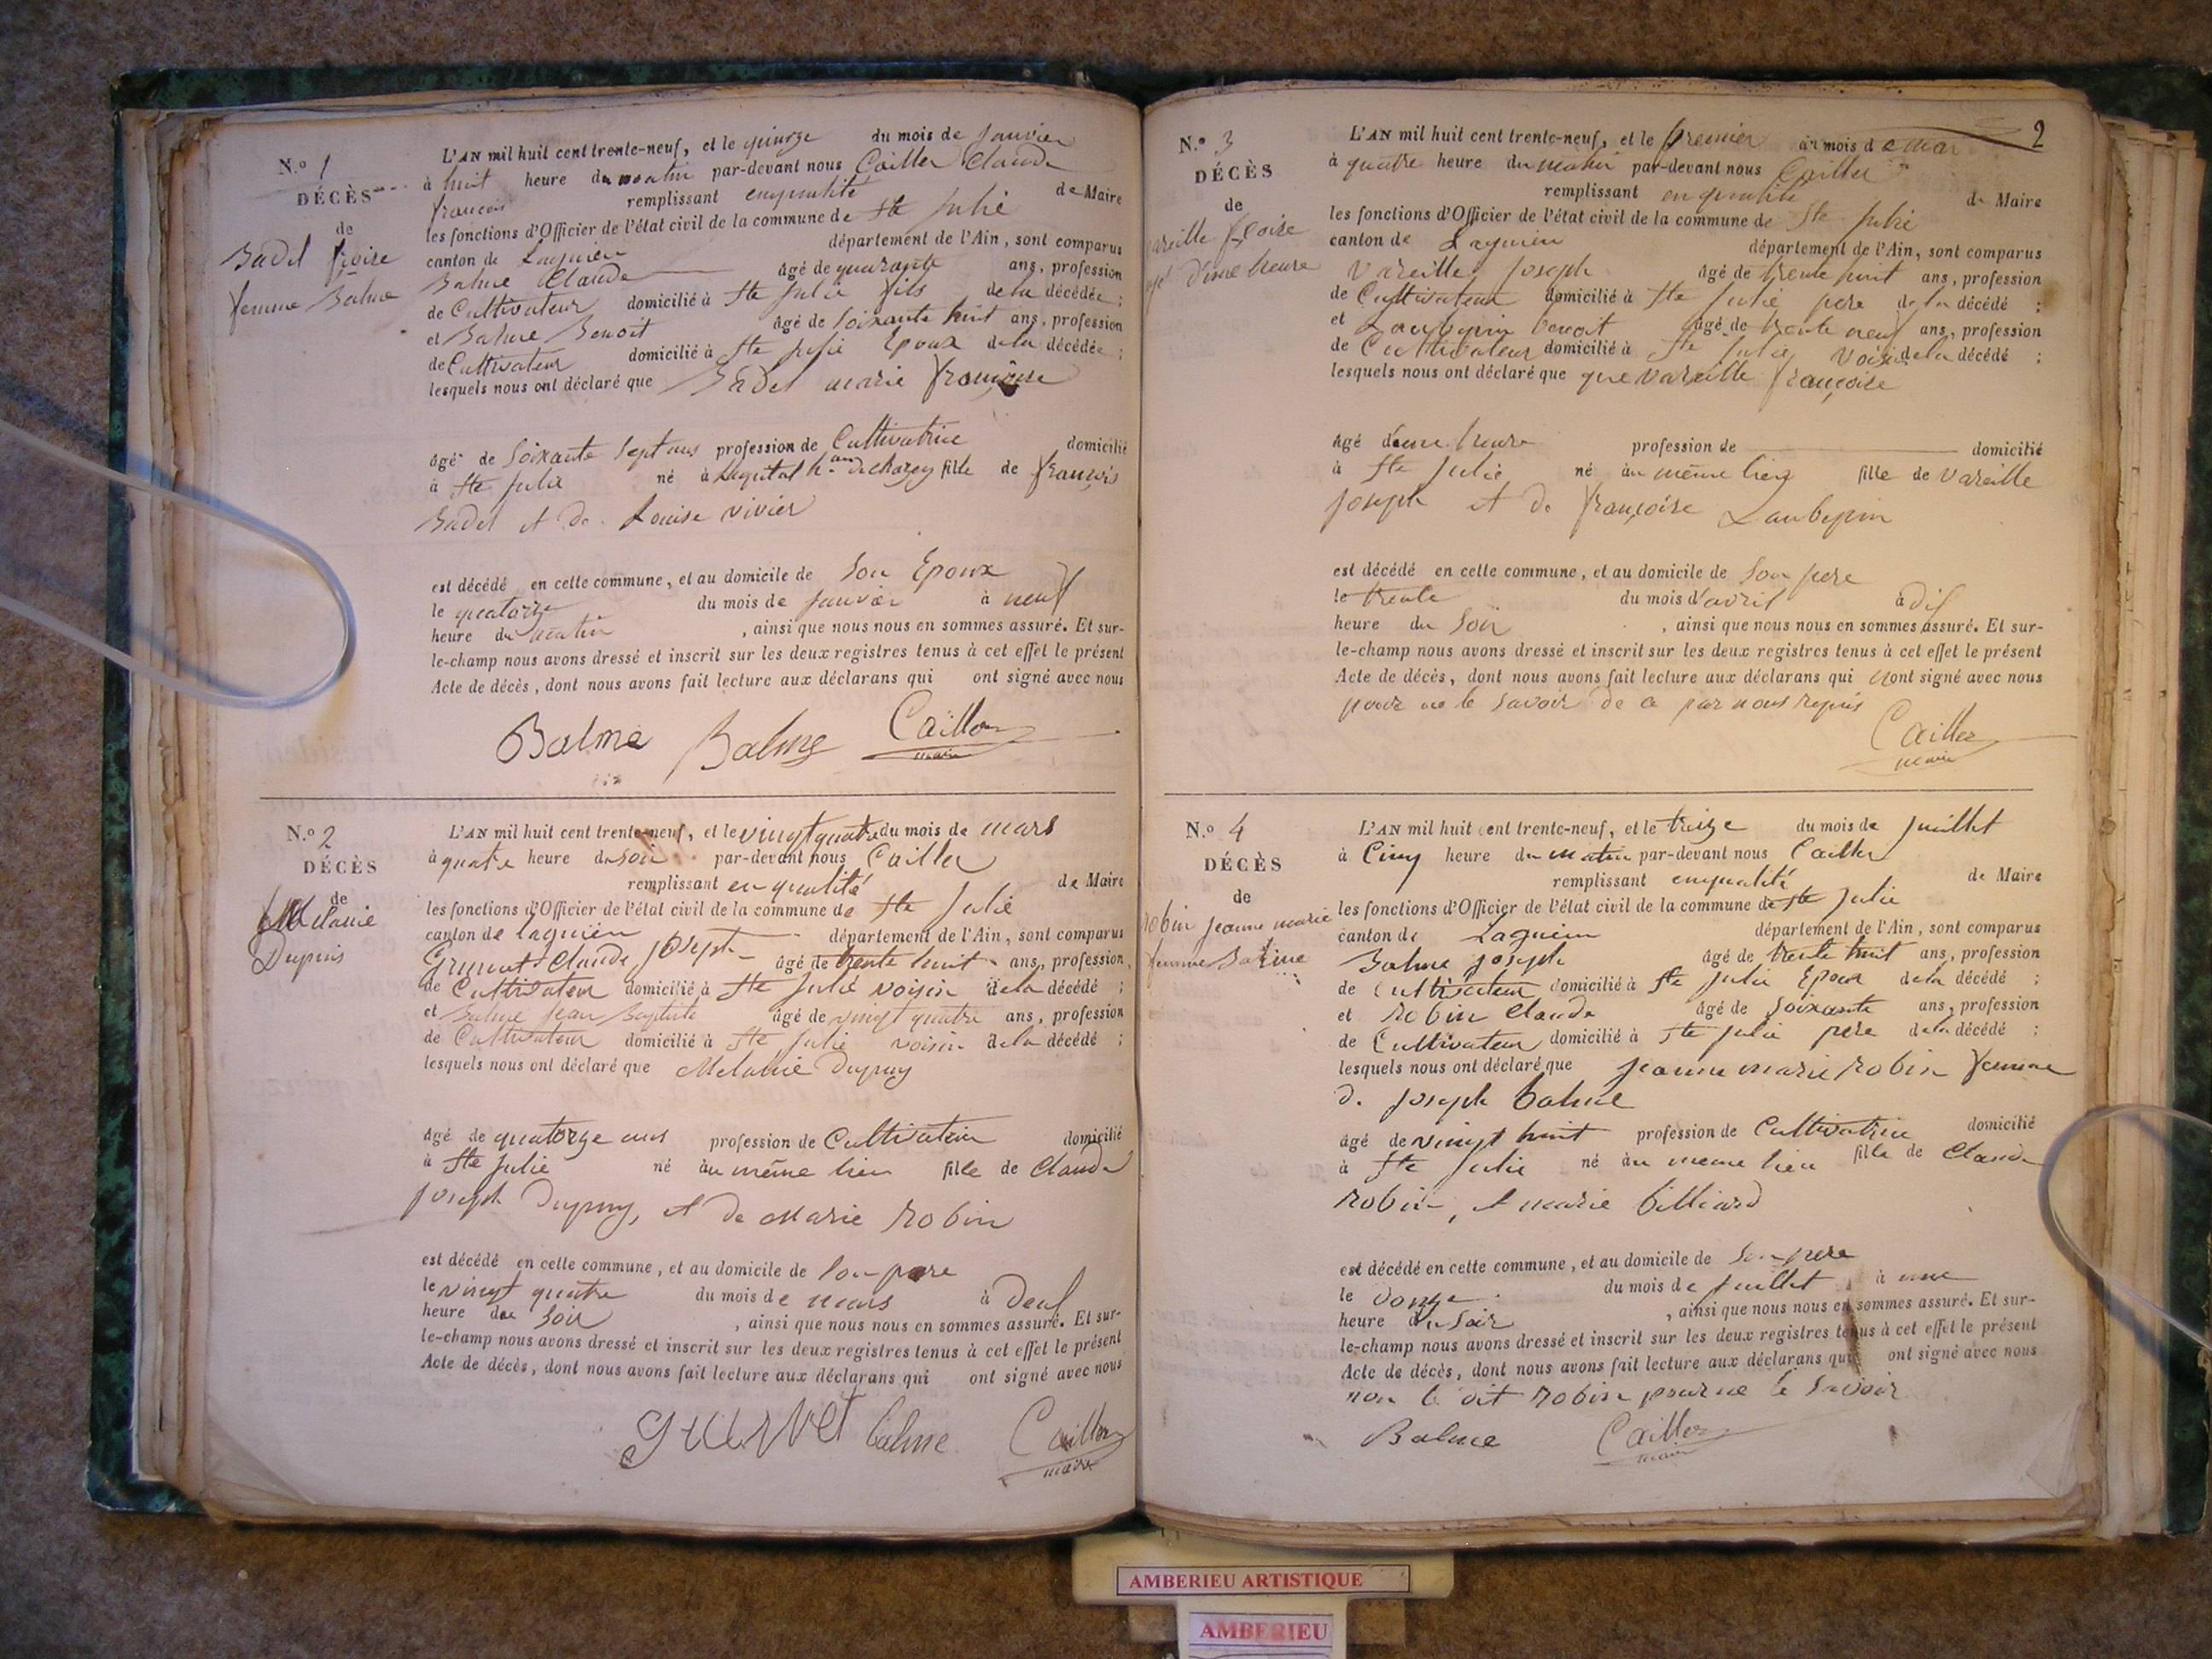 N.º 1
DÉCÈS
de
Badel fçoise
femme Balme
L'AN mil huit cent trente-neuf, et le quinze du mois de janvier
à huit heure du matin par-devant nous Cailler Claude
françois remplissant enqualité de Maire
les fonctions d'Officier de l'état civil de la commune de Ste Julie
canton de Lagnieu département de l'Ain, sont comparus
Balme Claude âgé de quarante ans, profession
de Cultivateur domicilié à Ste Julie fils de la décédée ;
et Balme Benoit âgé de Soixante huit ans, profession
de Cultivateur domicilié à Ste Julie Epoux de la décédée ;
lesquels nous ont déclaré que Badel marie françoise
âgé de Soixante Sept ans profession de Cultivatrice domicilié
à Ste Julie né à de charey fille de françois
Badel et de Louise vivier
est décédé en cette commune, et au domicile de Son Epoux
le quatorze du mois de janvier à neuf
heure du matin , ainsi que nous nous en sommes assuré. Et sur-
le-champ nous avons dressé et inscrit sur les deux registres tenus à cet effet le présent
Acte de décès, dont nous avons fait lecture aux déclarans qui ont signé avec nous
Balme Balme Cailler
maire
N.º 2
DÉCÈS
de
Melanie
Dupuis
L'AN mil huit cent trente-neuf, et le vingt quatre du mois de mars
à quatre heure du soir par-devant nous Cailler
remplissant en qualité de Maire
les fonctions d'Officier de l'état civil de la commune de Ste Julie
canton de lagnieu département de l'Ain, sont comparus
Claude joseph âgé de trente huit ans, profession
de Cultivateur domicilié à Ste Julie voisin de la décédé ;
et Balme Jean Baptiste âgé de vingt quatre ans, profession
de Cultivateur domicilié à Ste Julie voisin de la décédé ;
lesquels nous ont déclaré que Melanie Dupuy
âgé de quatorze ans profession de Cultivateur domicilié
à Ste Julie né au même lieu fille de Claude
joseph Dupuy, et de Marie Robin
est décédé en cette commune, et au domicile de Son pere
le vingt quatre du mois de mars à deux
heure du Soir , ainsi que nous nous en sommes assuré. Et sur-
le-champ nous avons dressé et inscrit sur les deux registres tenus à cet effet le présent
Acte de décès, dont nous avons fait lecture aux déclarans qui ont signé avec nous
balme Cailler
maire
2
N.º 3
DÉCÈS
de
vareille fçoise
agé d'une heure
L'AN mil huit cent trente-neuf, et le premier du mois de mai
à quatre heure du matin par-devant nous Cailler
remplissant en qualité de Maire
les fonctions d'Officier de l'état civil de la commune de Ste Julie
canton de Lagnieu département de l'Ain, sont comparus
Vareille Joseph âgé de trente huit ans, profession
de Cultivateur domicilié à Ste Julie pere de la décédé ;
et Laubepin benoit âgé de trente neuf ans, profession
de Cultivateur domicilié à Ste Julie voisin de la décédé ;
lesquels nous ont déclaré que que vareille françoise
âgé d'une heure profession de domicilié
à Ste Julie né au même lieu fille de vareille
joseph et de françoise Laubepin
est décédé en cette commune, et au domicile de Son pere
le trente du mois d'avril à dix
heure du Soir , ainsi que nous nous en sommes assuré. Et sur-
le-champ nous avons dressé et inscrit sur les deux registres tenus à cet effet le présent
Acte de décès, dont nous avons fait lecture aux déclarans qui n'ont signé avec nous
pour ne le Savoir de ce par nous requis
Cailler
maire
N.º 4
DÉCÈS
de
robin jeanne marie
femme Balme
L'AN mil huit cent trente-neuf, et le treize du mois de juillet
à Cinq heure du matin par-devant nous Cailler
remplissant enqualité de Maire
les fonctions d'Officier de l'état civil de la commune de Ste Julie
canton de Lagnieu département de l'Ain, sont comparus
Balme joseph âgé de trente huit ans, profession
de Cultivateur domicilié à Ste Julie Epoux de la décédé ;
et Robin Claude âgé de Soixante ans, profession
de Cultivateur domicilié à Ste Julie pere de la décédé ;
lesquels nous ont déclaré que jeanne marie Robin femme
de joseph balme
âgé de vingt huit profession de Cultivatrice domicilié
à Ste Julie né au meme lieu fille de Claude
Robin, et marie billiard
est décédé en cette commune, et au domicile de Son pere
le du mois de juillet à une
heure du Soir , ainsi que nous nous en sommes assuré. Et sur-
le-champ nous avons dressé et inscrit sur les deux registres tenus à cet effet le présent
Acte de décès, dont nous avons fait lecture aux déclarans qui ont signé avec nous
non le dit Robin pour ne le Savoir
Balme Cailler
maire
AMBERIEU ARTISTIQUE
AMBERIEU